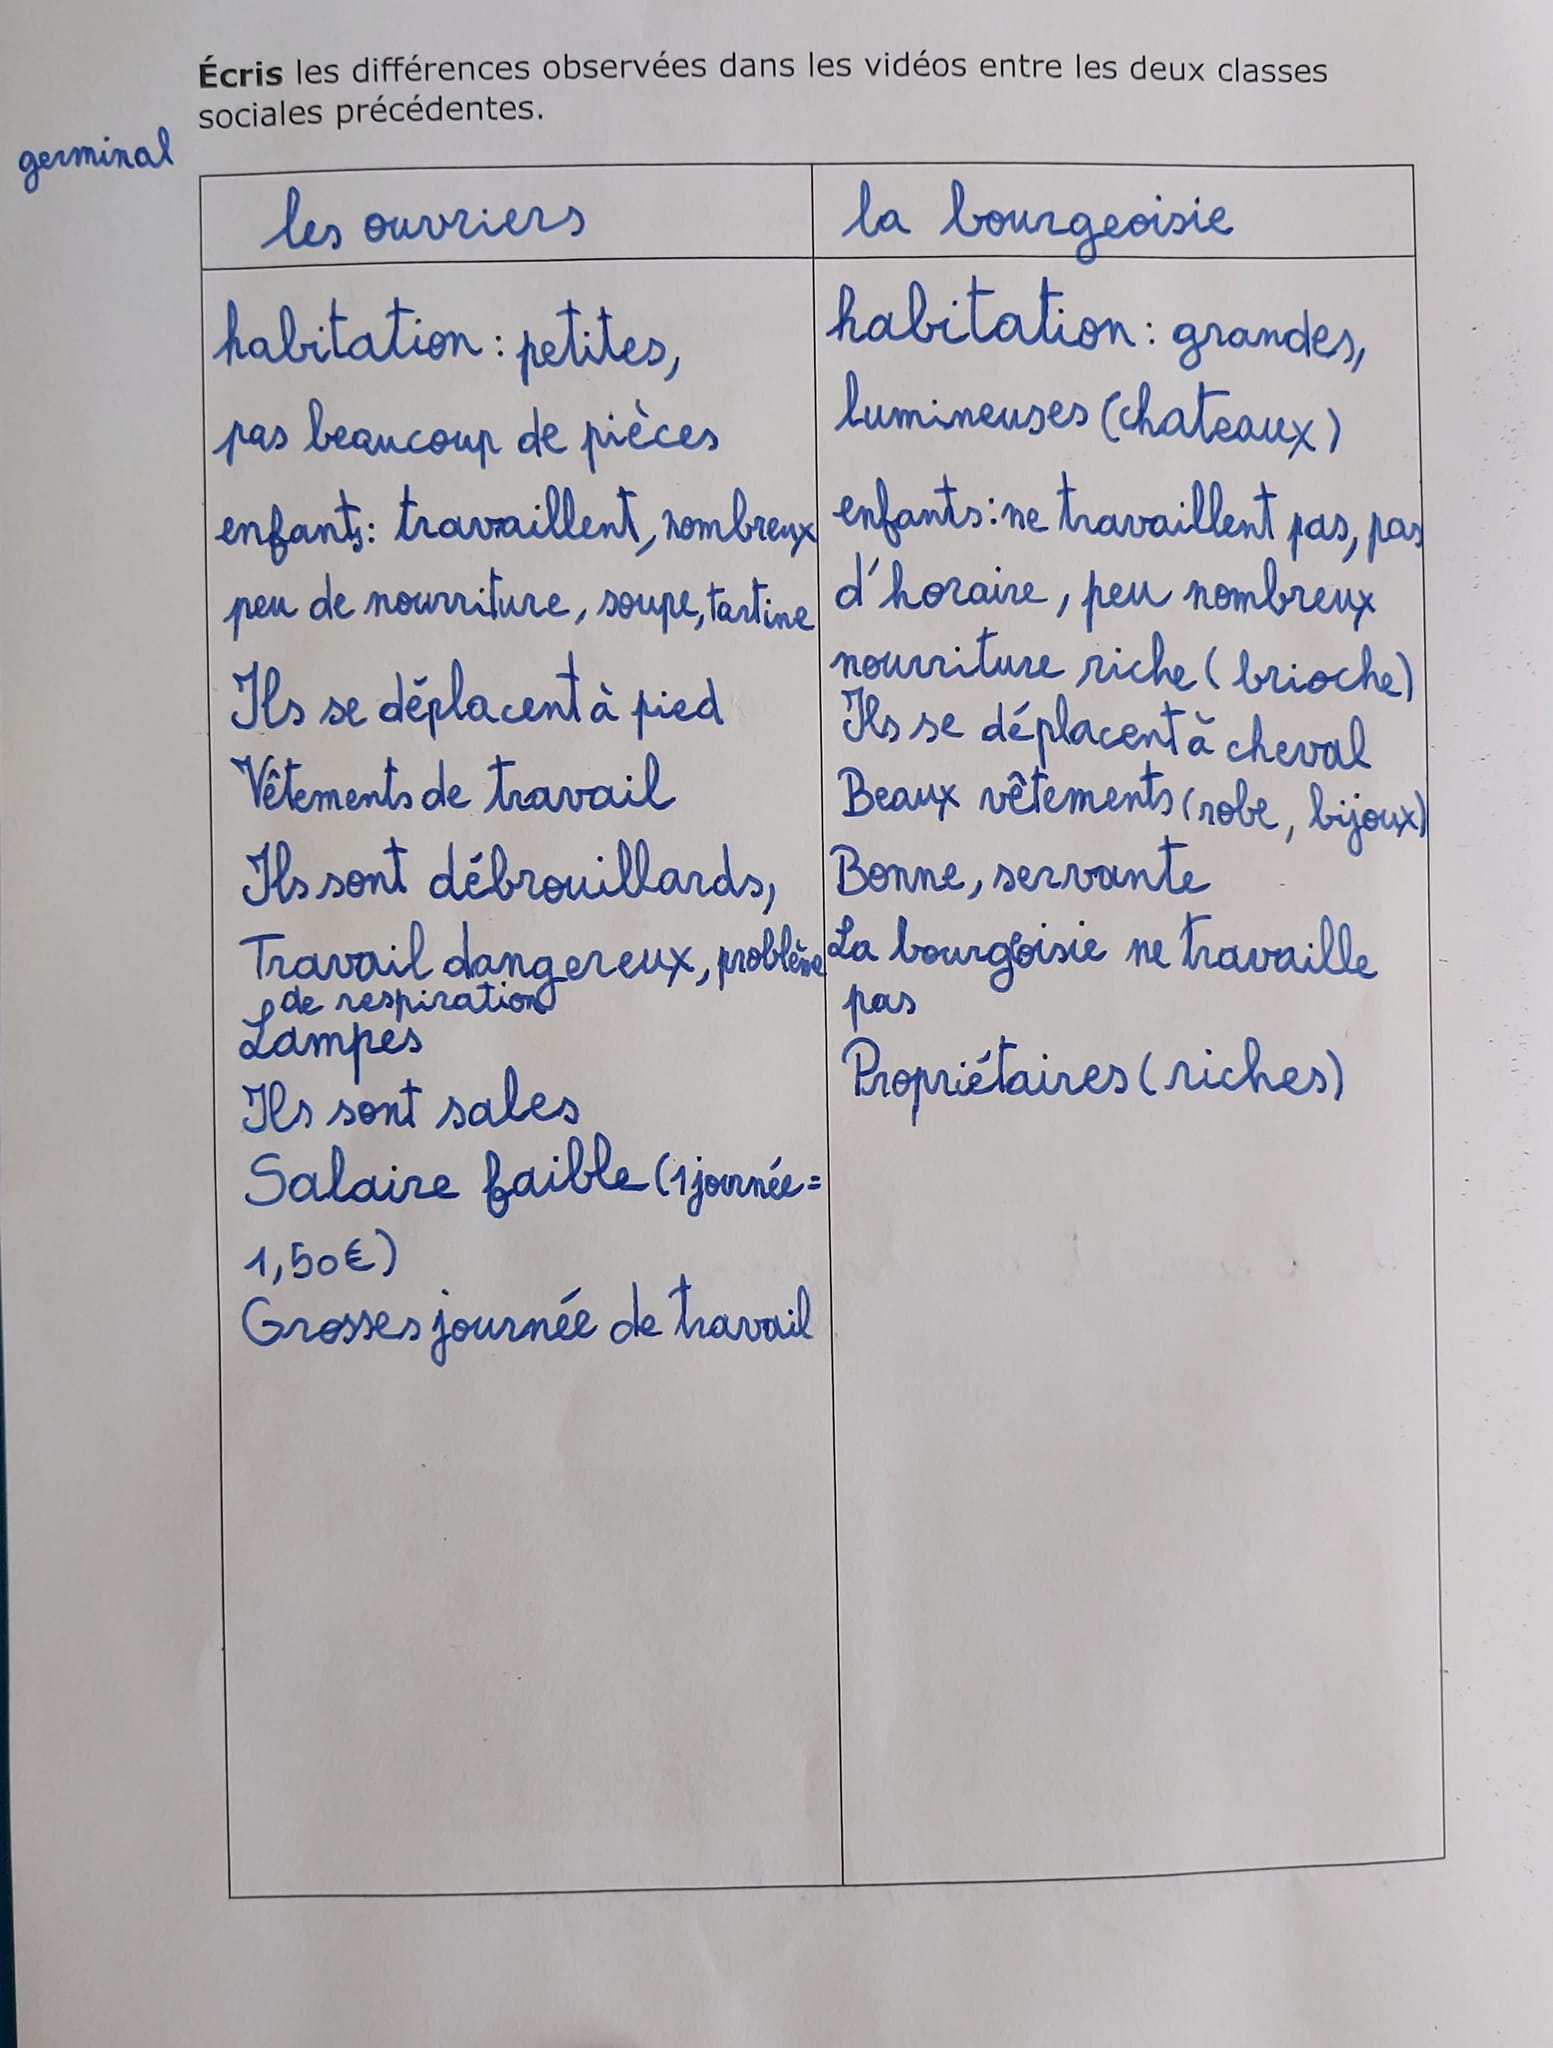 Écris les différences observées dans les vidéos entre les deux classes
sociales précédentes.
germinal
les ouvriers
habitation : petites,
pas beaucoup de pièces
enfants : travaillent, nombreux
peu de nourriture, soupe, tartine
Ils se déplacent à pied
Vêtements de travail
Ils sont débrouillards,
Travail dangereux, problème
de respiration
Lampes
Ils sont sales
Salaire faible (1 journée =
1,50€)
Grosses journée de travail
la bourgeoisie
habitation : grandes,
lumineuses (chateaux)
enfants : ne travaillent pas, pas
d'horaire, peu nombreux
nourriture riche (brioche)
Ils se déplacent à cheval
Beaux vêtements (robe, bijoux)
Bonne, servante
La bourgeoisie ne travaille
pas
Propriétaires (riches)